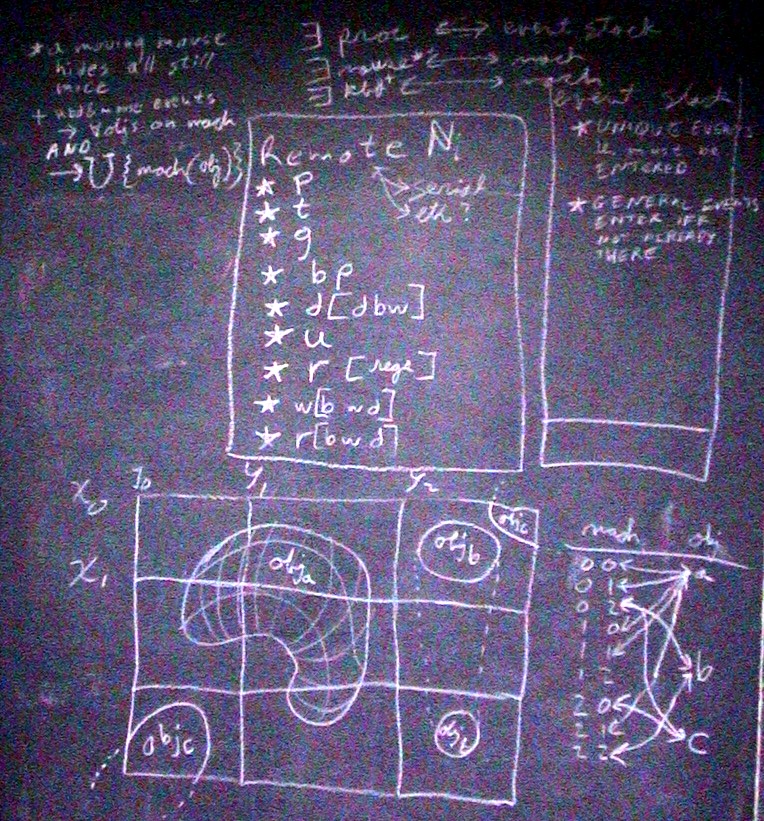 * a moving mouse
hides all still
mice
+ kbd & mouse events
→ ∀ objs on mach
AND
→ ∪ {mach(obj)}
∃ proc ↔ event stack
∃ mouse*+ ↔ mach
∃ kbd+ ↔ mach
Remote N1
serial
eth?
* p
* t
* g
* bp
* d[dbw]
* u
* r [regs]
* w[bwd]
* r[bwd]
event stack
* UNIQUE EVENTS
must be
ENTERED
* GENERAL EVENTS
ENTER IFF
NOT ALREADY
THERE
y0 y1 y2
x0
x1
obja
objb
objc
objc
objb
mach obj
0 0
0 1
0 2
1 0
1 1
1 2
2 0
2 1
2 2
a
b
c